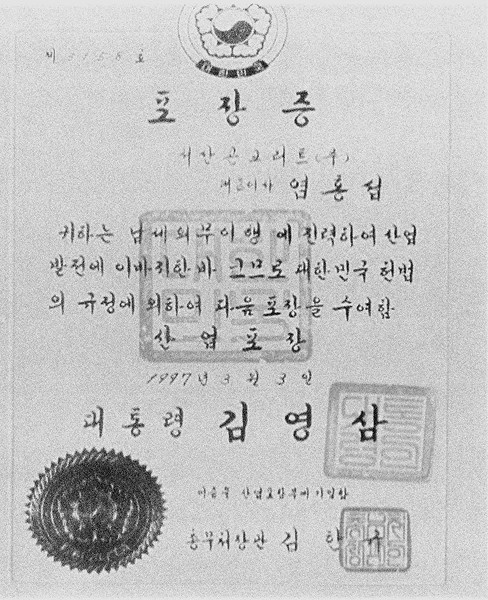 제 2158 호
포장증
서산콘크리트(주)
대표이사 염홍섭
귀하는 납세의무이행에 진력하여 산업
발전에 이바지한바 크므로 대한민국 헌법
의 규정에 의하여 다음 포장을 수여함
산업포장
1997년 3월 3일
대통령 김영삼
이증을 산업포장부에 기입함
총무처장관 김한규